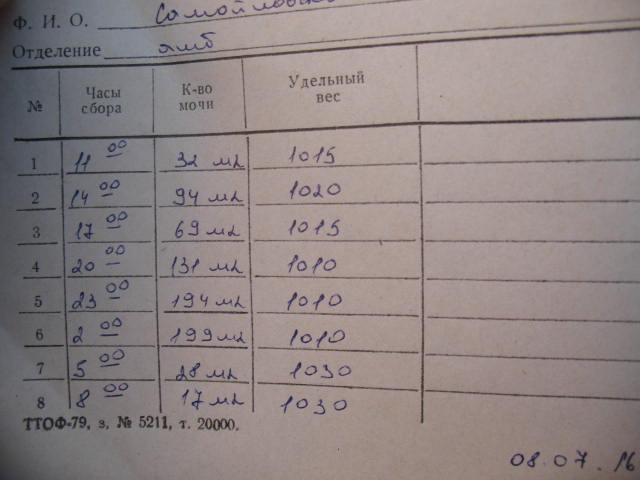 Ф. И. О.
Отделение амб
№ Часы сбора К-во мочи Удельный вес
1 11 00 32 мл 1015
2 14 00 94 мл 1020
3 17 00 69 мл 1015
4 20 00 131 мл 1010
5 23 00 194 мл 1010
6 2 00 199 мл 1010
7 5 00 28 мл 1030
8 8 00 17 мл 1030
ТТОФ-79, з, № 5211, т. 20000.
08.07.16